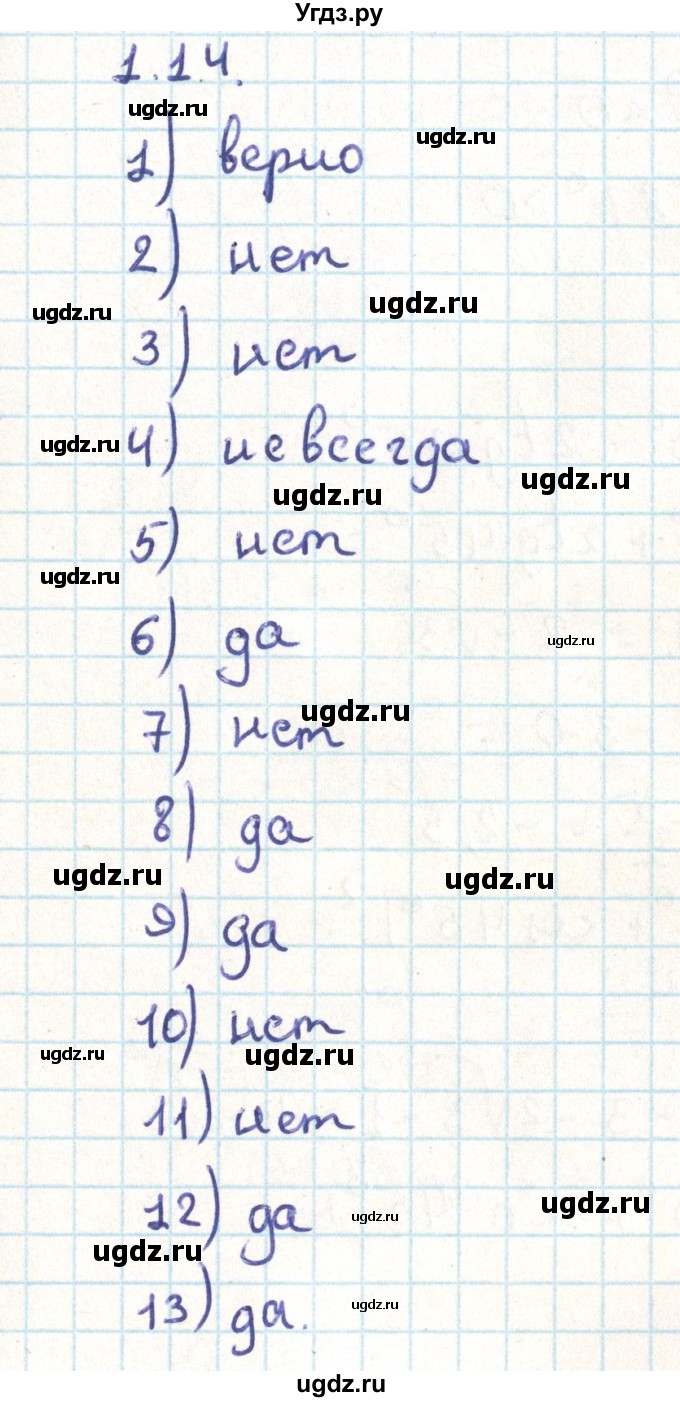 Угдз.ру
1.1.4.
ugdz.ru
ugdz.ru
1) верно
2) нет
ugdz.ru
ugdz.ru
3) нет
4) не всегда
ugdz.ru
ugdz.ru
ugdz.ru
5) нет
ugdz.ru
6) да
ugdz.ru
7) нет
ugdz.ru
8) да
ugdz.ru
ugdz.ru
9) да
10) нет
ugdz.ru
ugdz.ru
11) нет
12) да
ugdz.ru
ugdz.ru
ugdz.ru
13) да.
ugdz.ru
ugdz.ru